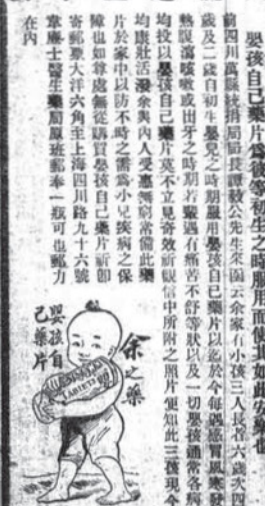 嬰孩自己藥片爲彼等初生之時服用而使其如此安樂也
前四川萬縣統捐局局長譚毅公先生來函云余家有小孩三人長者六歲次四
歲及二歲自初生嬰兒之時期服用嬰孩自己藥片以迄於今每遇感冒風寒發
熱腹瀉咳嗽或出牙之時期若驟遇有痛苦不舒等狀以及一切嬰孩通常各病
均投以嬰孩自己藥片莫不立見奇效祈觀信中所附之照片便知此三孩現今
均康壯活潑余與內人受惠無窮常備此藥
片於家中以防不時之需爲小兒疾病之保
障也如尊處無從購買嬰孩自己藥片祈即
寄郵票大洋六角至上海四川路九十六號
韋廉士醫生藥局原班郵奉一瓶可也郵力
在內
余之藥
嬰孩自
己藥片
TABLETS